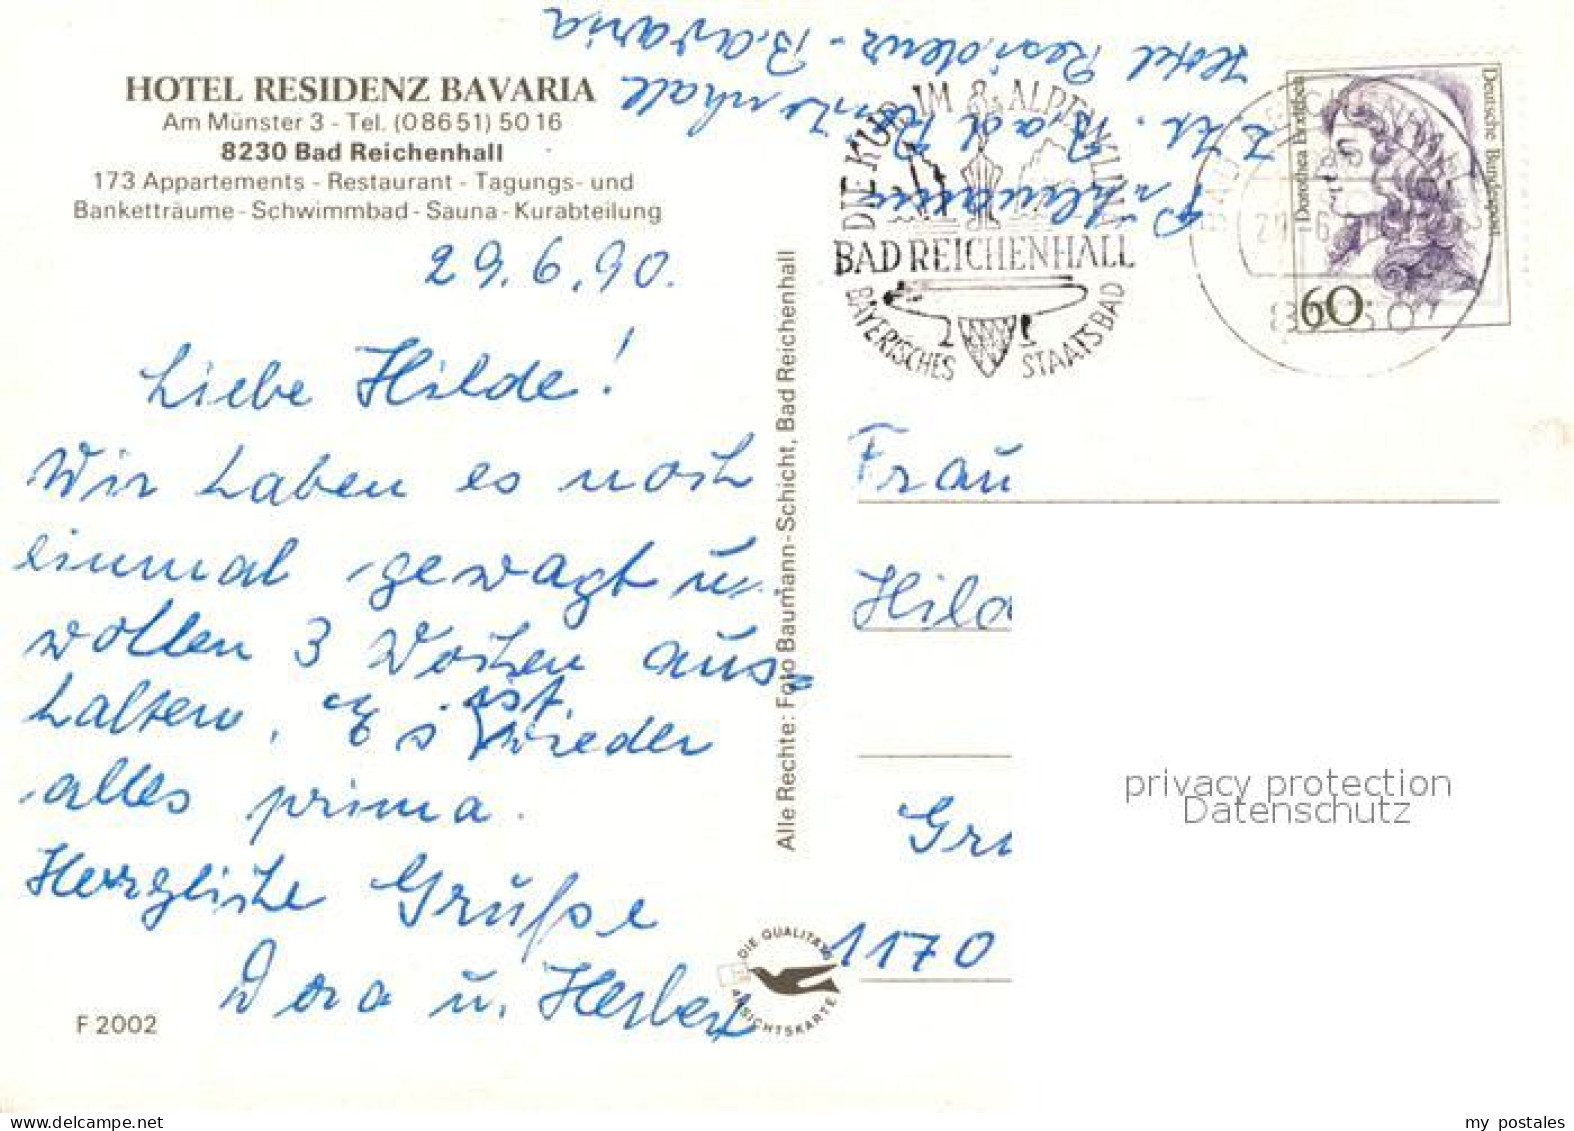 HOTEL RESIDENZ BAVARIA
Am Münster 3 - Tel. (08651) 5016
8230 Bad Reichenhall
173 Appartements - Restaurant - Tagungs- und
Banketträume - Schwimmbad - Sauna - Kurabteilung
29.6.90.
Liebe Hilde!
Wir haben es noch
einmal gewagt u.
wollen 3 Wochen aus=
halten. Es ist wieder
alles prima.
Herzliche Grüße
Dora u. Herbert
F 2002
Alle Rechte: Foto Baumann-Schicht, Bad Reichenhall
DIE QUALITÄTS
ANSICHTSKARTE
Hotel Residenz - Bavaria
Bad Reichenhall
DIE KUR IM ALPENKLIMA
BAD REICHENHALL
BAYERISCHES STAATSBAD
Deutsche Bundespost
Dorothea Erxleben
60
Frau
Hild
Gru
1170
privacy protection
Datenschutz
my postales